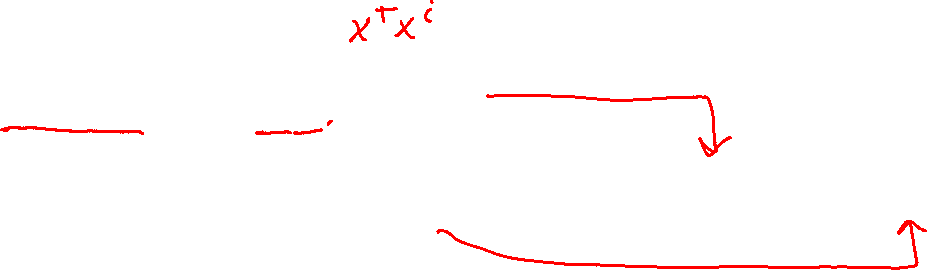 x^T x^i